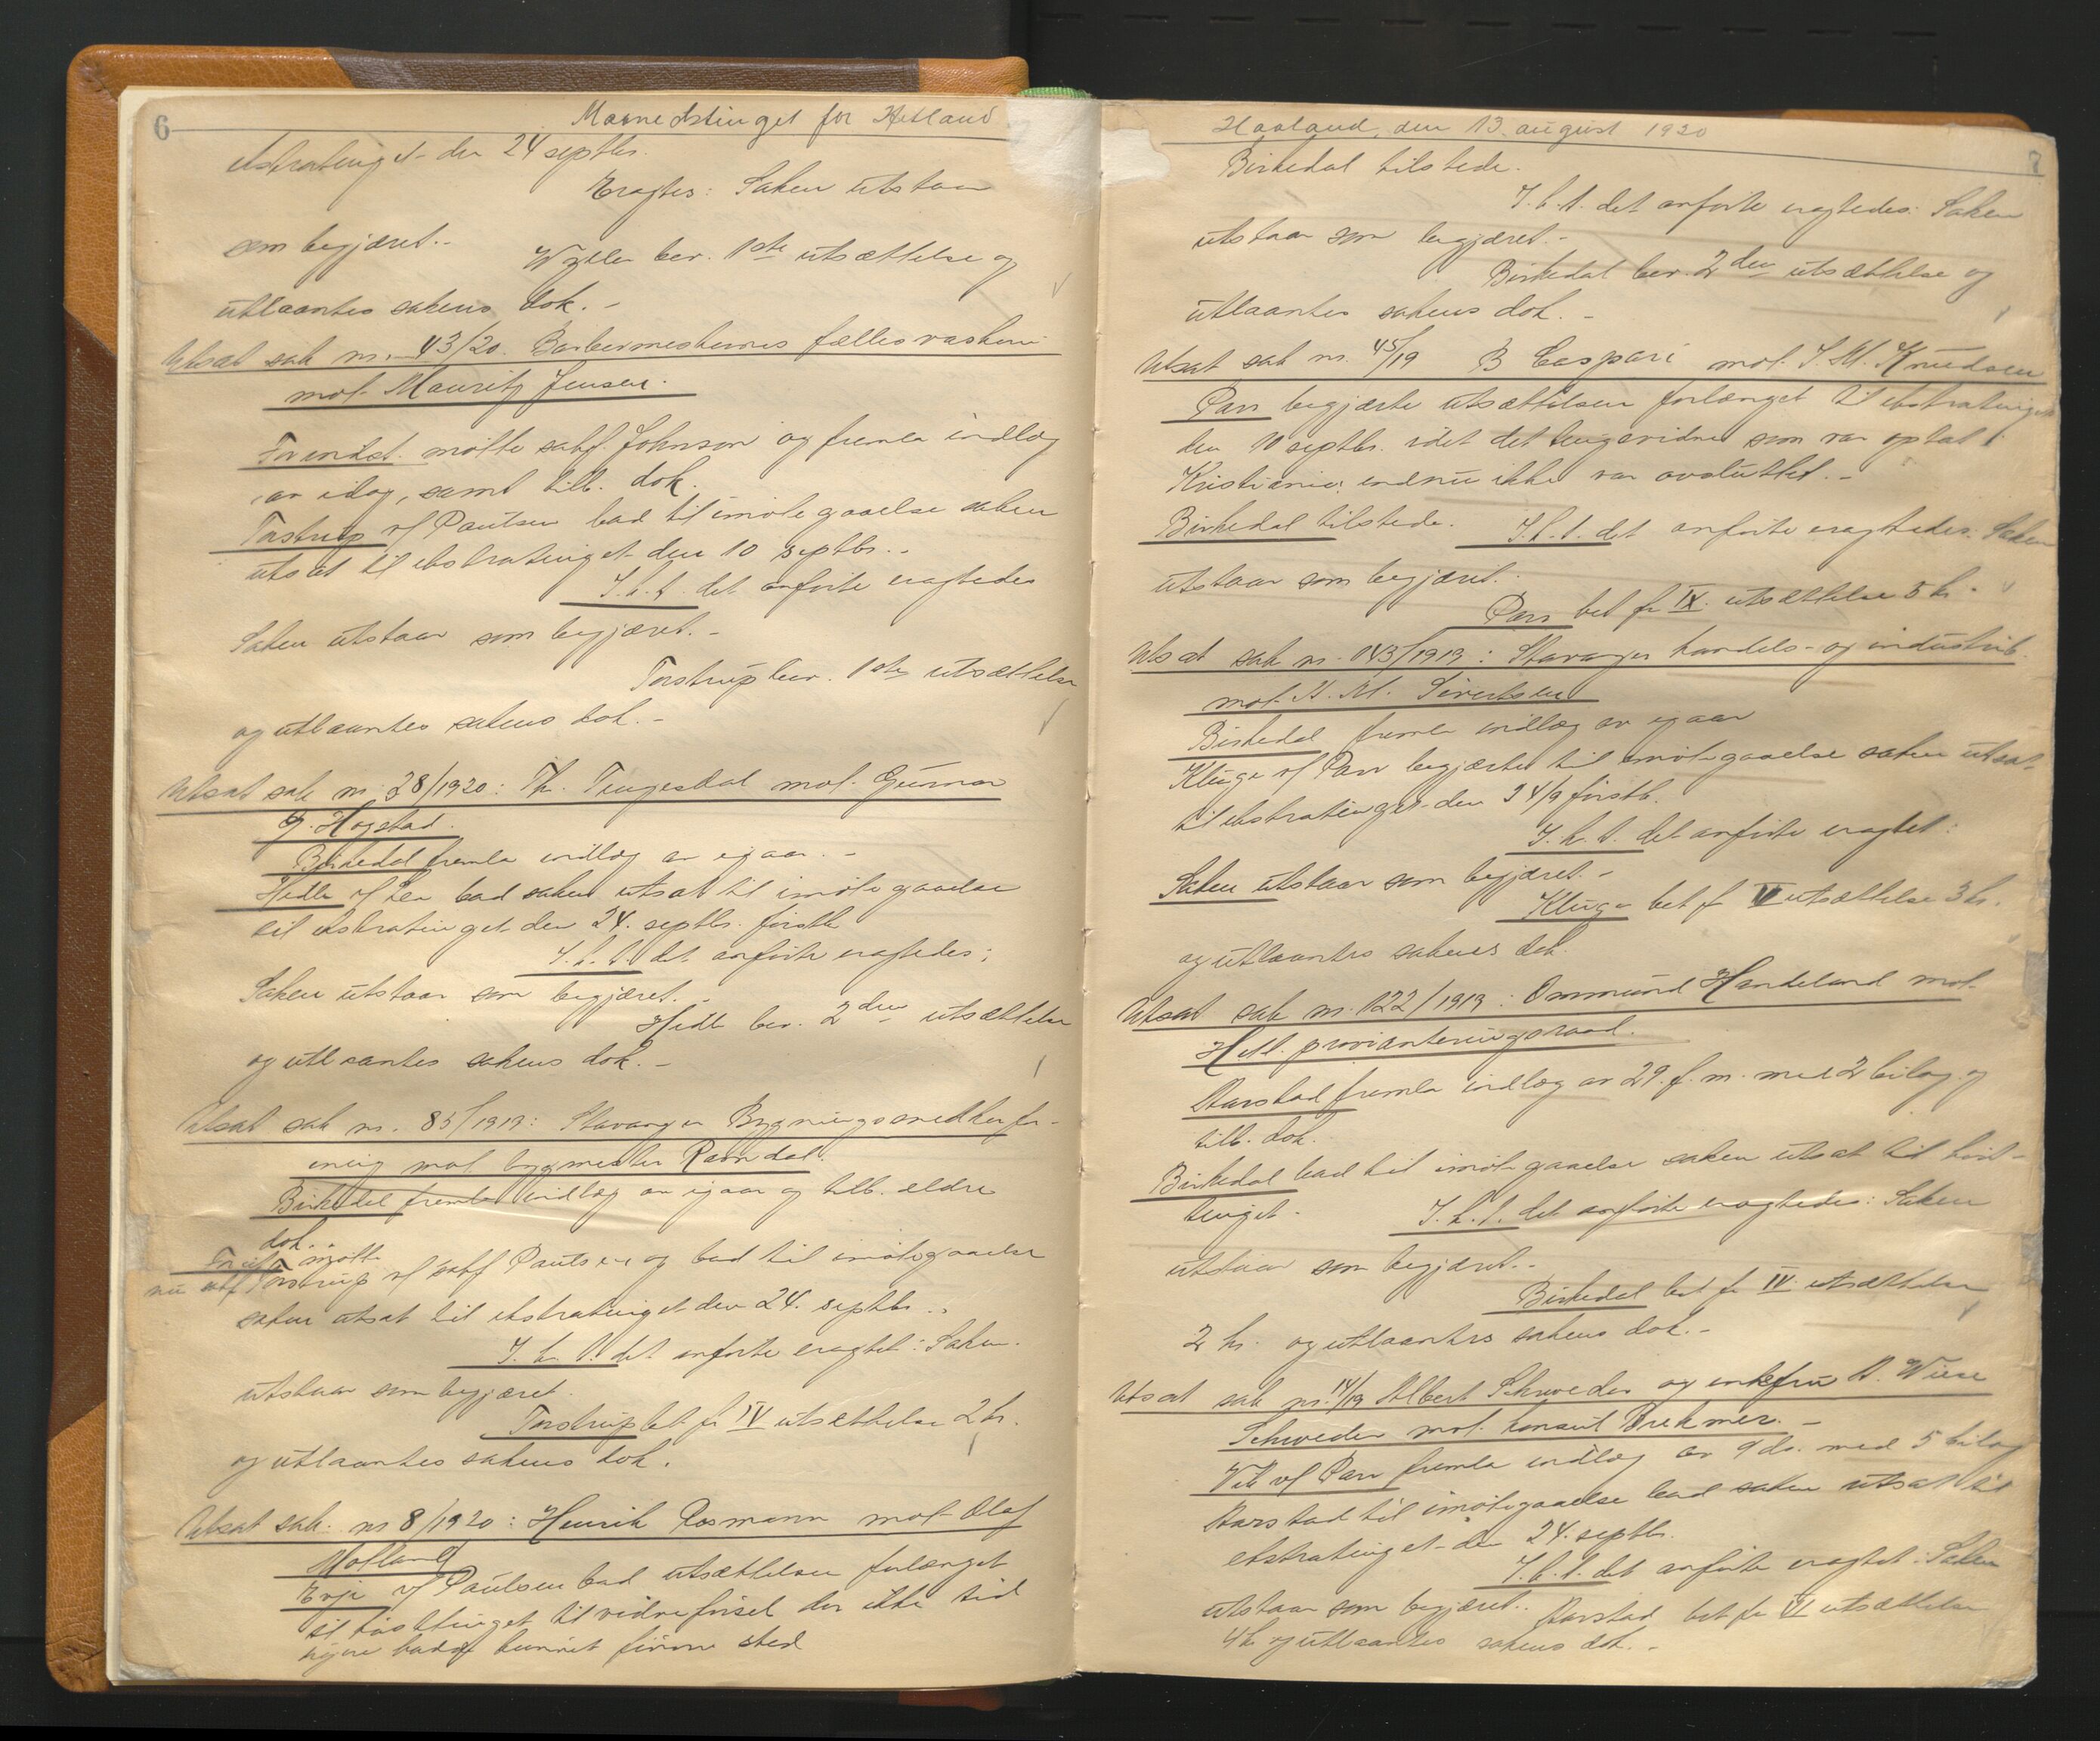 6
Maanedstinget for Hetland
ekstratinget den 24 septbr.
Eragtes: Saken utstaar
som begjæret.-
Wyller bev. 1ste utsættelse og
utlaantes sakens dok. -
Utsat sak nr. 43/20. Barbermesternes fællesvaskeri
mot Mauritz Jensen.
For indst. møtte sakf. Johnson og fremla indlæg
av idag, samt tilb. dok.
Torstrup vf Paulsen bad til imøtegaaelse saken
utsat til ekstratinget den 10 septbr. -
I. h. t. det anførte eragtedes
Saken utstaar som begjæret. -
Torstrup bev. 1ste utsættelse
og utlaantes sakens dok. -
Utsat sak nr. 28/1920: Th. Tengesdal mot Gunnar
G. Høgstad.
Birkedal fremla indlæg av igaar. -
Hedle vf Lea bad saken utsat til imøtegaaelse
til ekstratinget den 24. septbr. førstk
I. h. t. det anførte eragtedes:
Saken utstaar som begjæret. -
Hedle bev. 2den utsættelse
og utlaantes sakens dok. -
Utsat sak nr. 85/1919: Stavanger Bygningssnedkerfor-
ening mot bygmester Ravndal.
Birkedal fremla indlæg av igaar og tilb. ældre
dok. -
møtte
Torstrup vf sakf Paulsen og bad til imøtegaaelse
saken utsat til ekstratinget den 24. septbr. -
I. h. t. det anførte eragtet: Saken
utstaar som begjæret.
Torstrup bet fr IV utsættelse 2 kr.
og utlaantes sakens dok.
Utsat sak nr 8/1920: Henrik Rosmann mot Olaf
Molland
Erje vf Paulsen bad utsættelsen forlænget
til høsttinget til vidneførsel der ikke tid
ligere hadde kunnet finne sted
Haaland, den 13. august 1920
7
Birkedal tilstede.
I. h. t. det anførte eragtedes: Saken
utstaar som begjæret. -
Birkedal bev. 2den utsættelse og
utlaantes sakens dok. -
Utsat sak nr. 45/19 B Caspari mot I. M. Knudsen
Parr begjærte utsættelsen forlænget til ekstratinget
den 10 septbr. idet det tingsvidne som var optat i
Kristiania endnu ikke var avsluttet. -
Birkedal tilstede. I. h. t. det anførte eragtedes: Saken
utstaar som begjæret. -
Parr bet fr IX. utsættelse 5 kr -
Utsat sak nr. 143/1919: Stavanger handels- og industrib.
mot K. M. Sivertsen
Birkedal fremla indlæg av igaar
Kluge vf Parr begjærte til imøtegaaelse saken utsat
til ekstratinget den 24/9 førstk.
I. h. t. det anførte eragtet:
Saken utstaar som begjæret. -
Kluge bet fr VI utsættelse 3 kr.
og utlaantes sakens dok.
Utsat sak nr. 122/1919: Ommund Handeland mot
Hetl. provianteringsraad.
Aarstad fremla indlæg av 29. f. m. med 2 bilag og
tilb. dok.
Birkedal bad til imøtegaaelse saken utsat til høst-
tinget. I. h. t. det anførte eragtedes: Saken
utstaar som begjæret. -
Birkedal bet fr IV. utsættelse
2 kr. og utlaantes sakens dok. -
Utsat sak nr. 14/19 Albert Schweder og enkefru A. Wiese
Schweder mot konsul Brekmer. -
Vik vf Parr fremla indlæg av 9 ds. med 5 bilag
Aarstad til imøtegaaelse bad saken utsat til
ekstratinget den 24. septbr.
I. h. t. det anførte eragtet: Saken
utstaar som begjæret. - Aarstad bet fr VI utsættelse
4 kr og utlaantes sakens dok. -